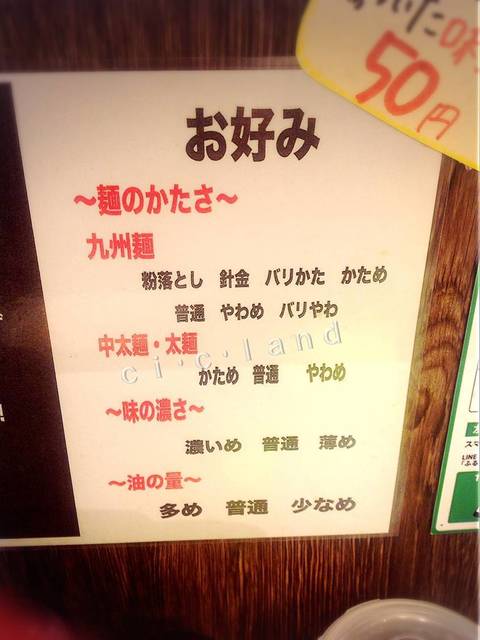 50円
お好み
～麺のかたさ～
九州麺
粉落とし 針金 バリかた かため
普通 やわめ バリやわ
中太麺・太麺
ci.c.land
かため 普通 やわめ
～味の濃さ～
濃いめ 普通 薄め
～油の量～
多め 普通 少なめ
LINE